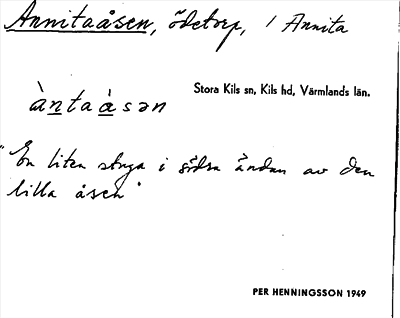 Annitaåsen, ödetorp, / Annita
Stora Kils sn, Kils hd, Värmlands län.
àntaàsən
"En liten stuga i södra ändan av den
lilla åsen"
PER HENNINGSSON 1949